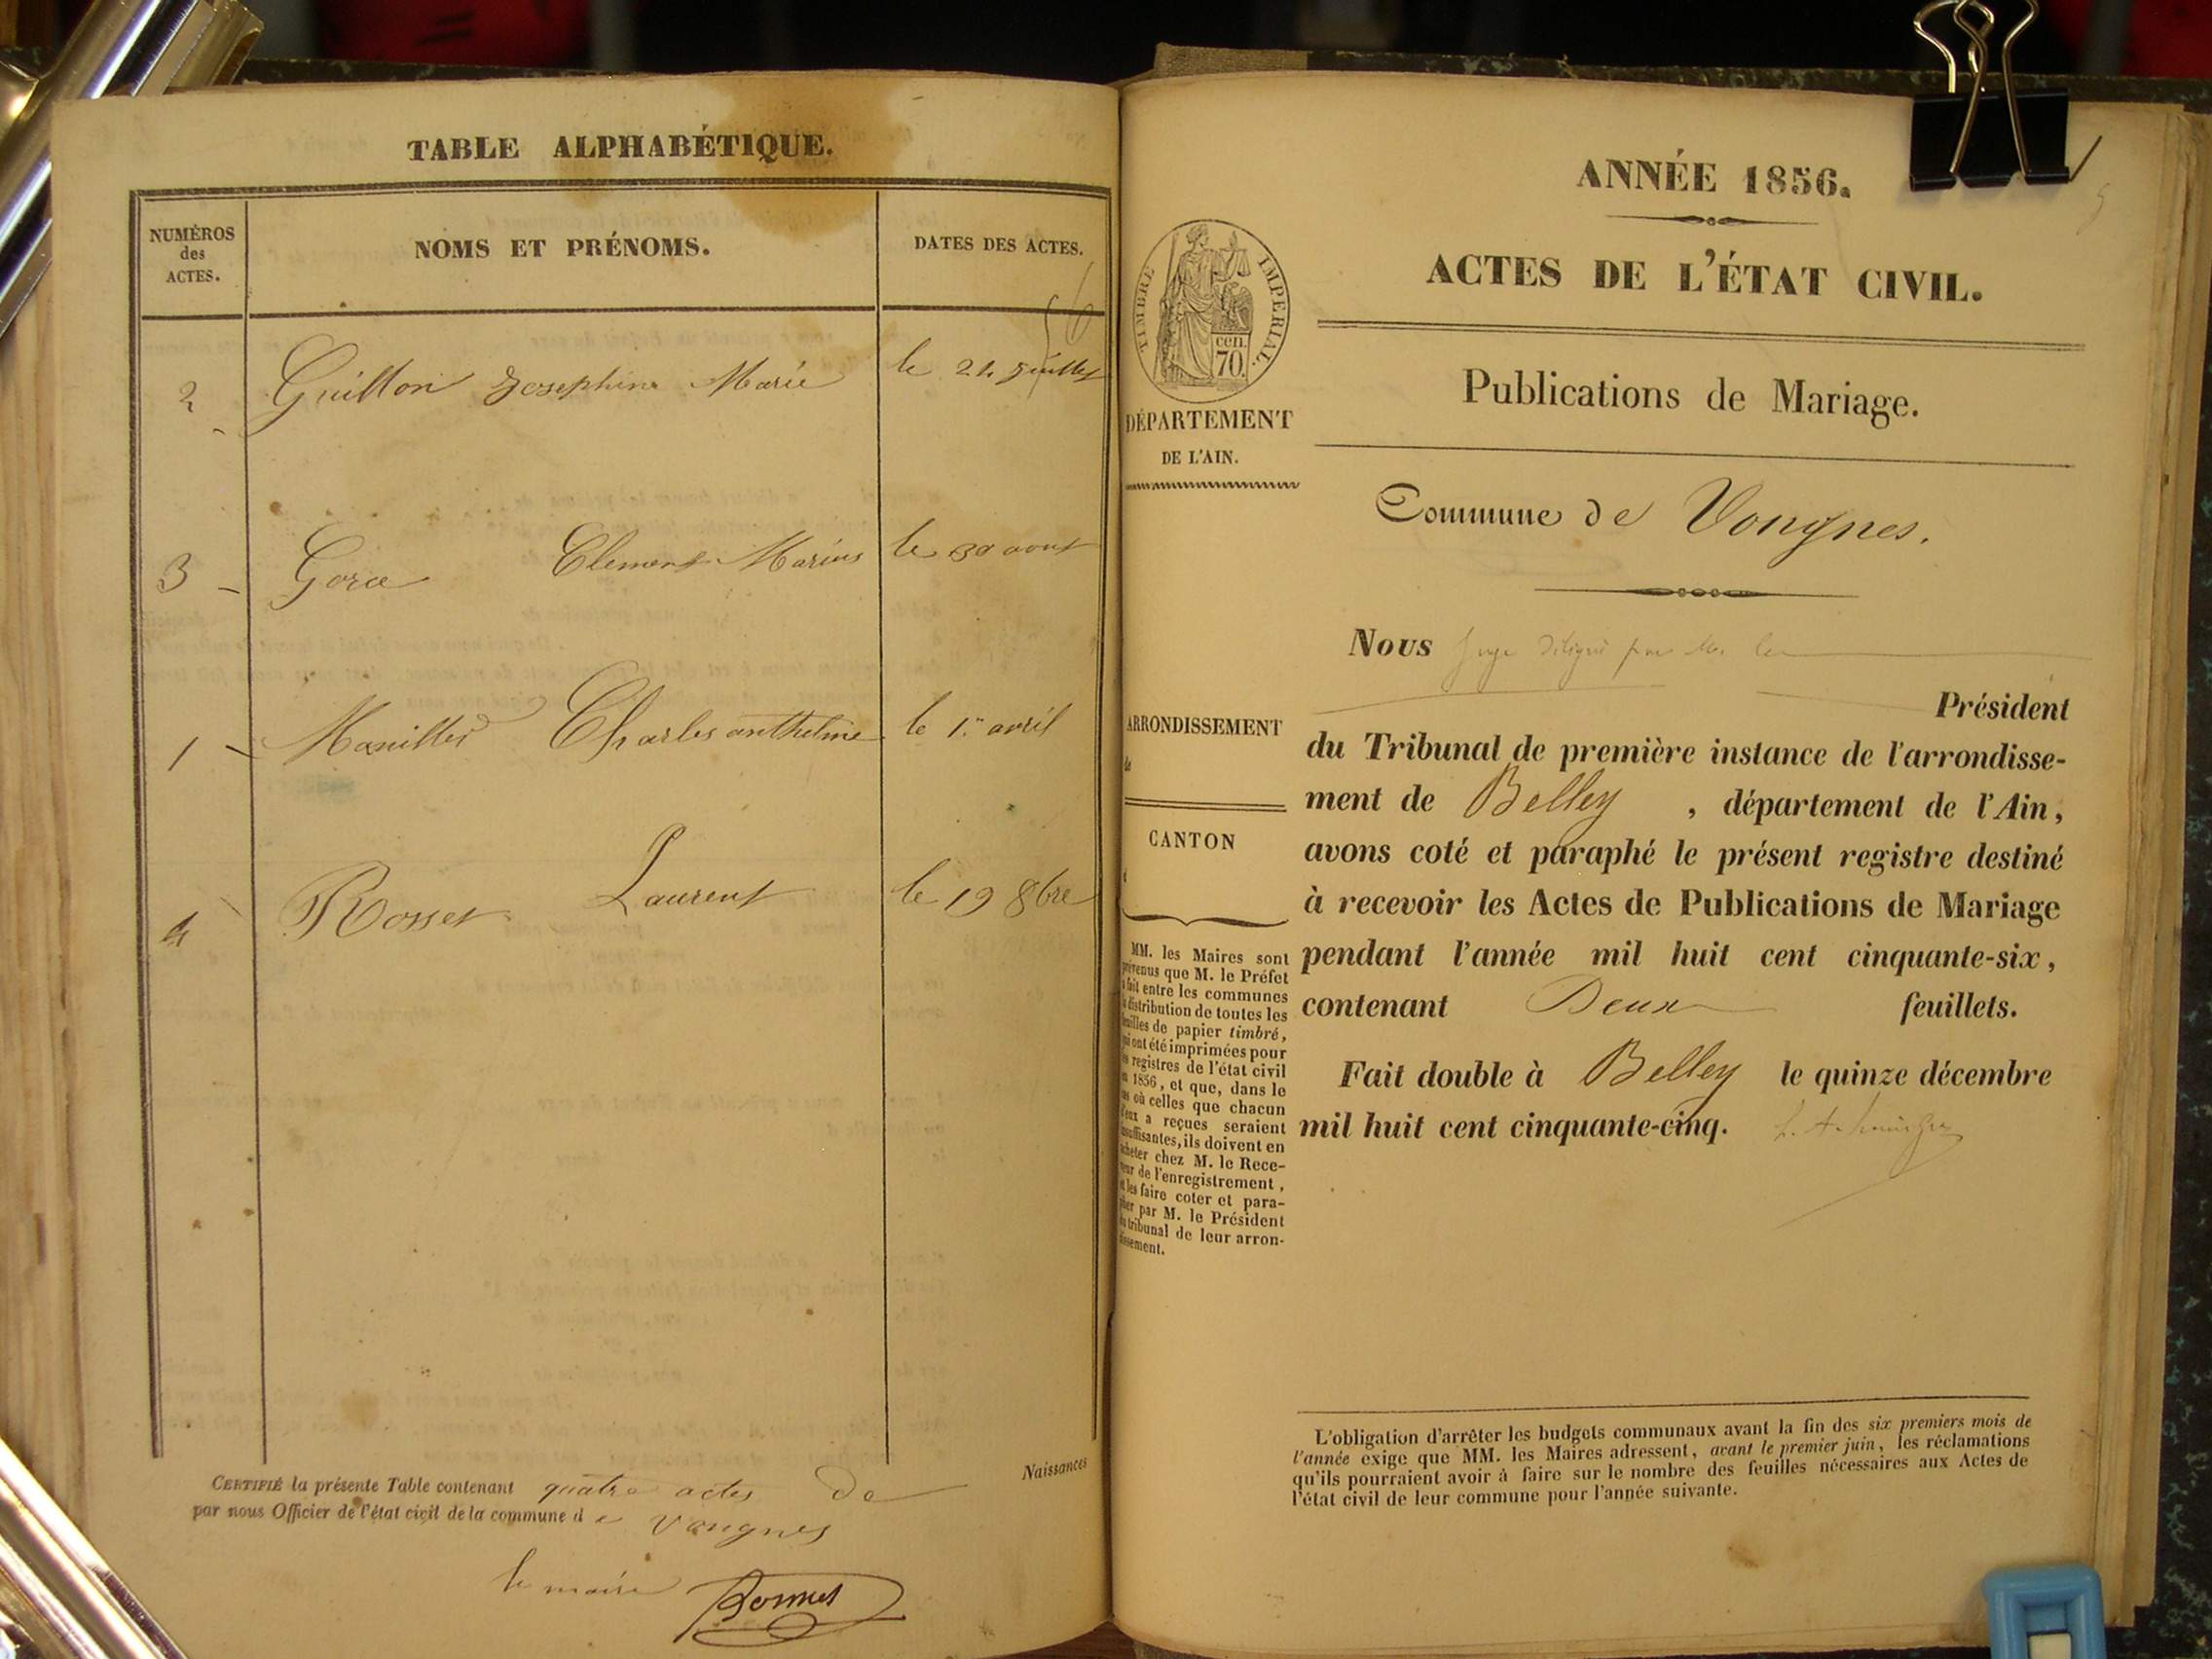 TABLE ALPHABÉTIQUE.
NUMÉROS
des
ACTES.
NOMS ET PRÉNOMS.
DATES DES ACTES.
2 Guillon Josephine Marie le 24 Juillet
3 Gorce Clement Marius le 30 aout
1 Charles anthelme le 1er avril
4 Rosset Laurent le 19 8bre
CERTIFIÉ la présente Table contenant quatre actes de Naissances
par nous Officier de l'état civil de la commune d e Vongnes
le maire Bonnet
ANNÉE 1856.
ACTES DE L'ÉTAT CIVIL.
TIMBRE IMPERIAL.
cen.
70.
Publications de Mariage.
DÉPARTEMENT
DE L'AIN.
Commune de Vongnes.
Nous Juge
Président
ARRONDISSEMENT
de
du Tribunal de première instance de l'arrondisse-
ment de Belley , département de l'Ain,
CANTON
avons coté et paraphé le présent registre destiné
à recevoir les Actes de Publications de Mariage
pendant l'année mil huit cent cinquante-six,
contenant Deux feuillets.
Fait double à Belley le quinze décembre
mil huit cent cinquante-cinq.
MM. les Maires sont
prévenus que M. le Préfet
a fait entre les communes
la distribution de toutes les
feuilles de papier timbré,
qui ont été imprimées pour
les registres de l'état civil
en 1856, et que, dans le
cas où celles que chacun
d'eux a reçues seraient
insuffisantes, ils doivent en
acheter chez M. le Rece-
veur de l'enregistrement,
et les faire coter et para-
pher par M. le Président
du tribunal de leur arron-
dissement.
L'obligation d'arrêter les budgets communaux avant la fin des six premiers mois de
l'année exige que MM. les Maires adressent, avant le premier juin, les réclamations
qu'ils pourraient avoir à faire sur le nombre des feuilles nécessaires aux Actes de
l'état civil de leur commune pour l'année suivante.